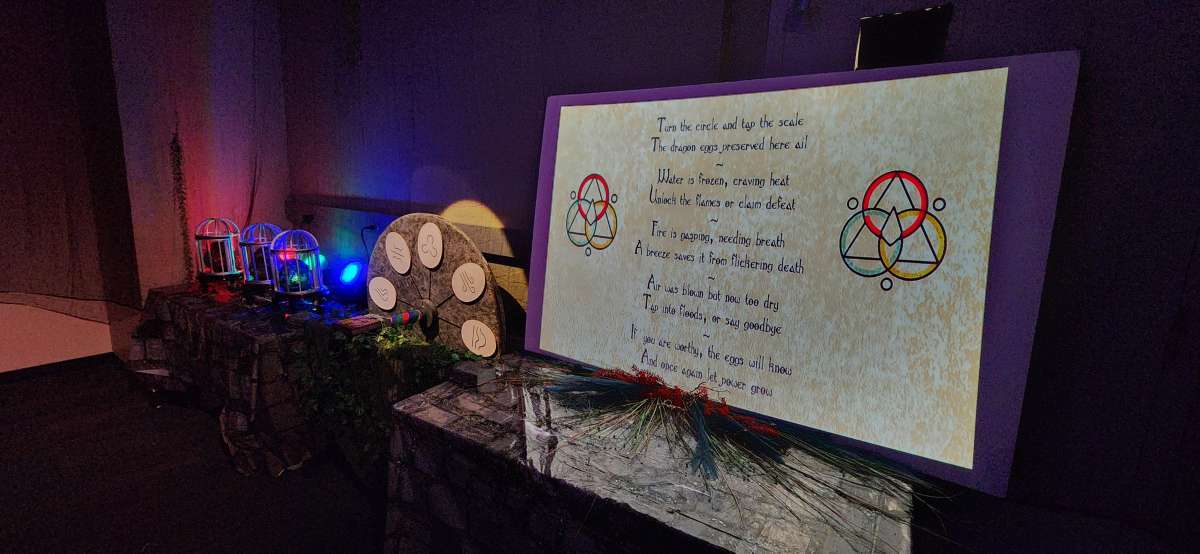 Turn the circle and tap the scale
The dragon eggs preserved here ail
~
Water is frozen, craving heat
Unlock the flames or claim defeat
~
Fire is gasping, needing breath
A breeze saves it from flickering death
~
Air was blown but now too dry
Tap into floods, or say goodbye
~
If you are worthy, the eggs will know
And once again let power grow